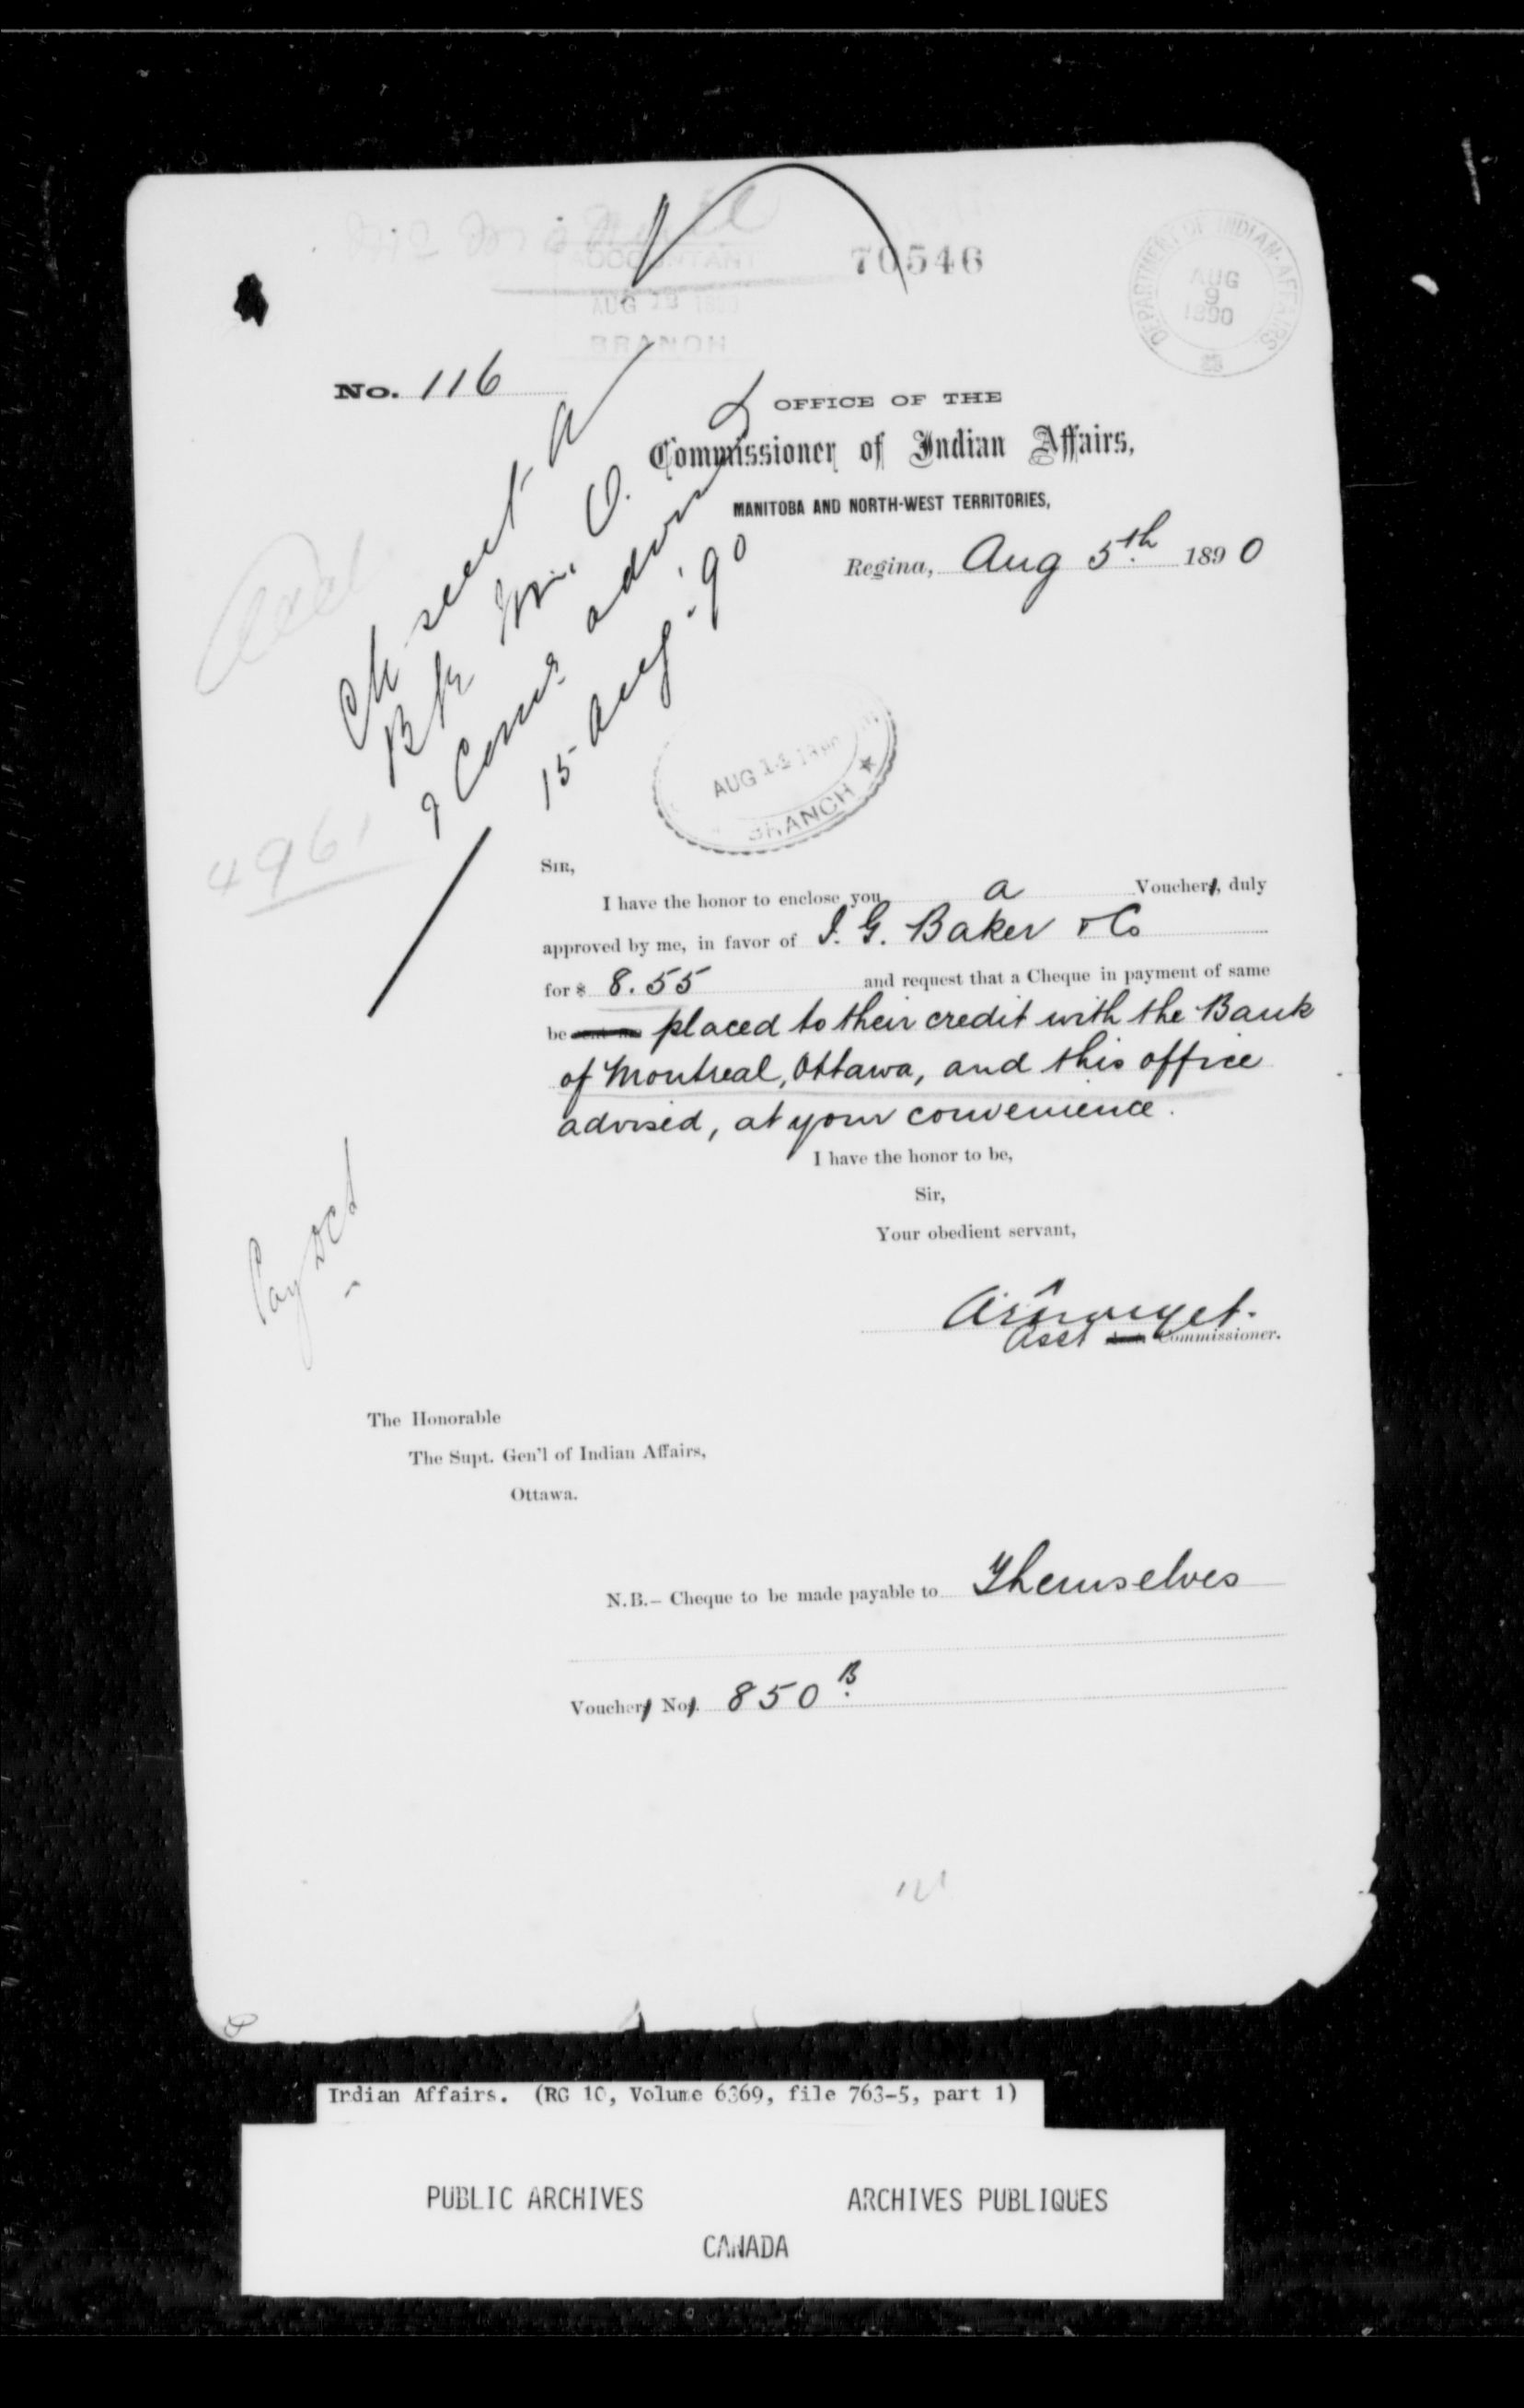 70546
ACCOUNTANT
AUG 1890
BRANCH
DEPARTMENT OF INDIAN AFFAIRS
AUG
9
1890
No. 116
OFFICE OF THE
Commissioner of Indian Affairs,
MANITOBA AND NORTH-WEST TERRITORIES,
Regina, Aug 5th 1890
Ck sent a
Bk O.
& Comr advised
15 Aug '90
AUG 14 1890
BRANCH
4961
SIR,
I have the honor to enclose you a Voucher, duly
approved by me, in favor of I. G. Baker & Co
for $ 8.55 and request that a Cheque in payment of same
be placed to their credit with the Bank
of Montreal, Ottawa, and this office
advised, at your convenience.
I have the honor to be,
Sir,
Your obedient servant,
Pay
Asst Commissioner.
The Honorable
The Supt. Gen'l of Indian Affairs,
Ottawa.
N.B.— Cheque to be made payable to Themselves
Voucher No. 850 B
Indian Affairs. (RG 10, Volume 6369, file 763-5, part 1)
PUBLIC ARCHIVES ARCHIVES PUBLIQUES
CANADA